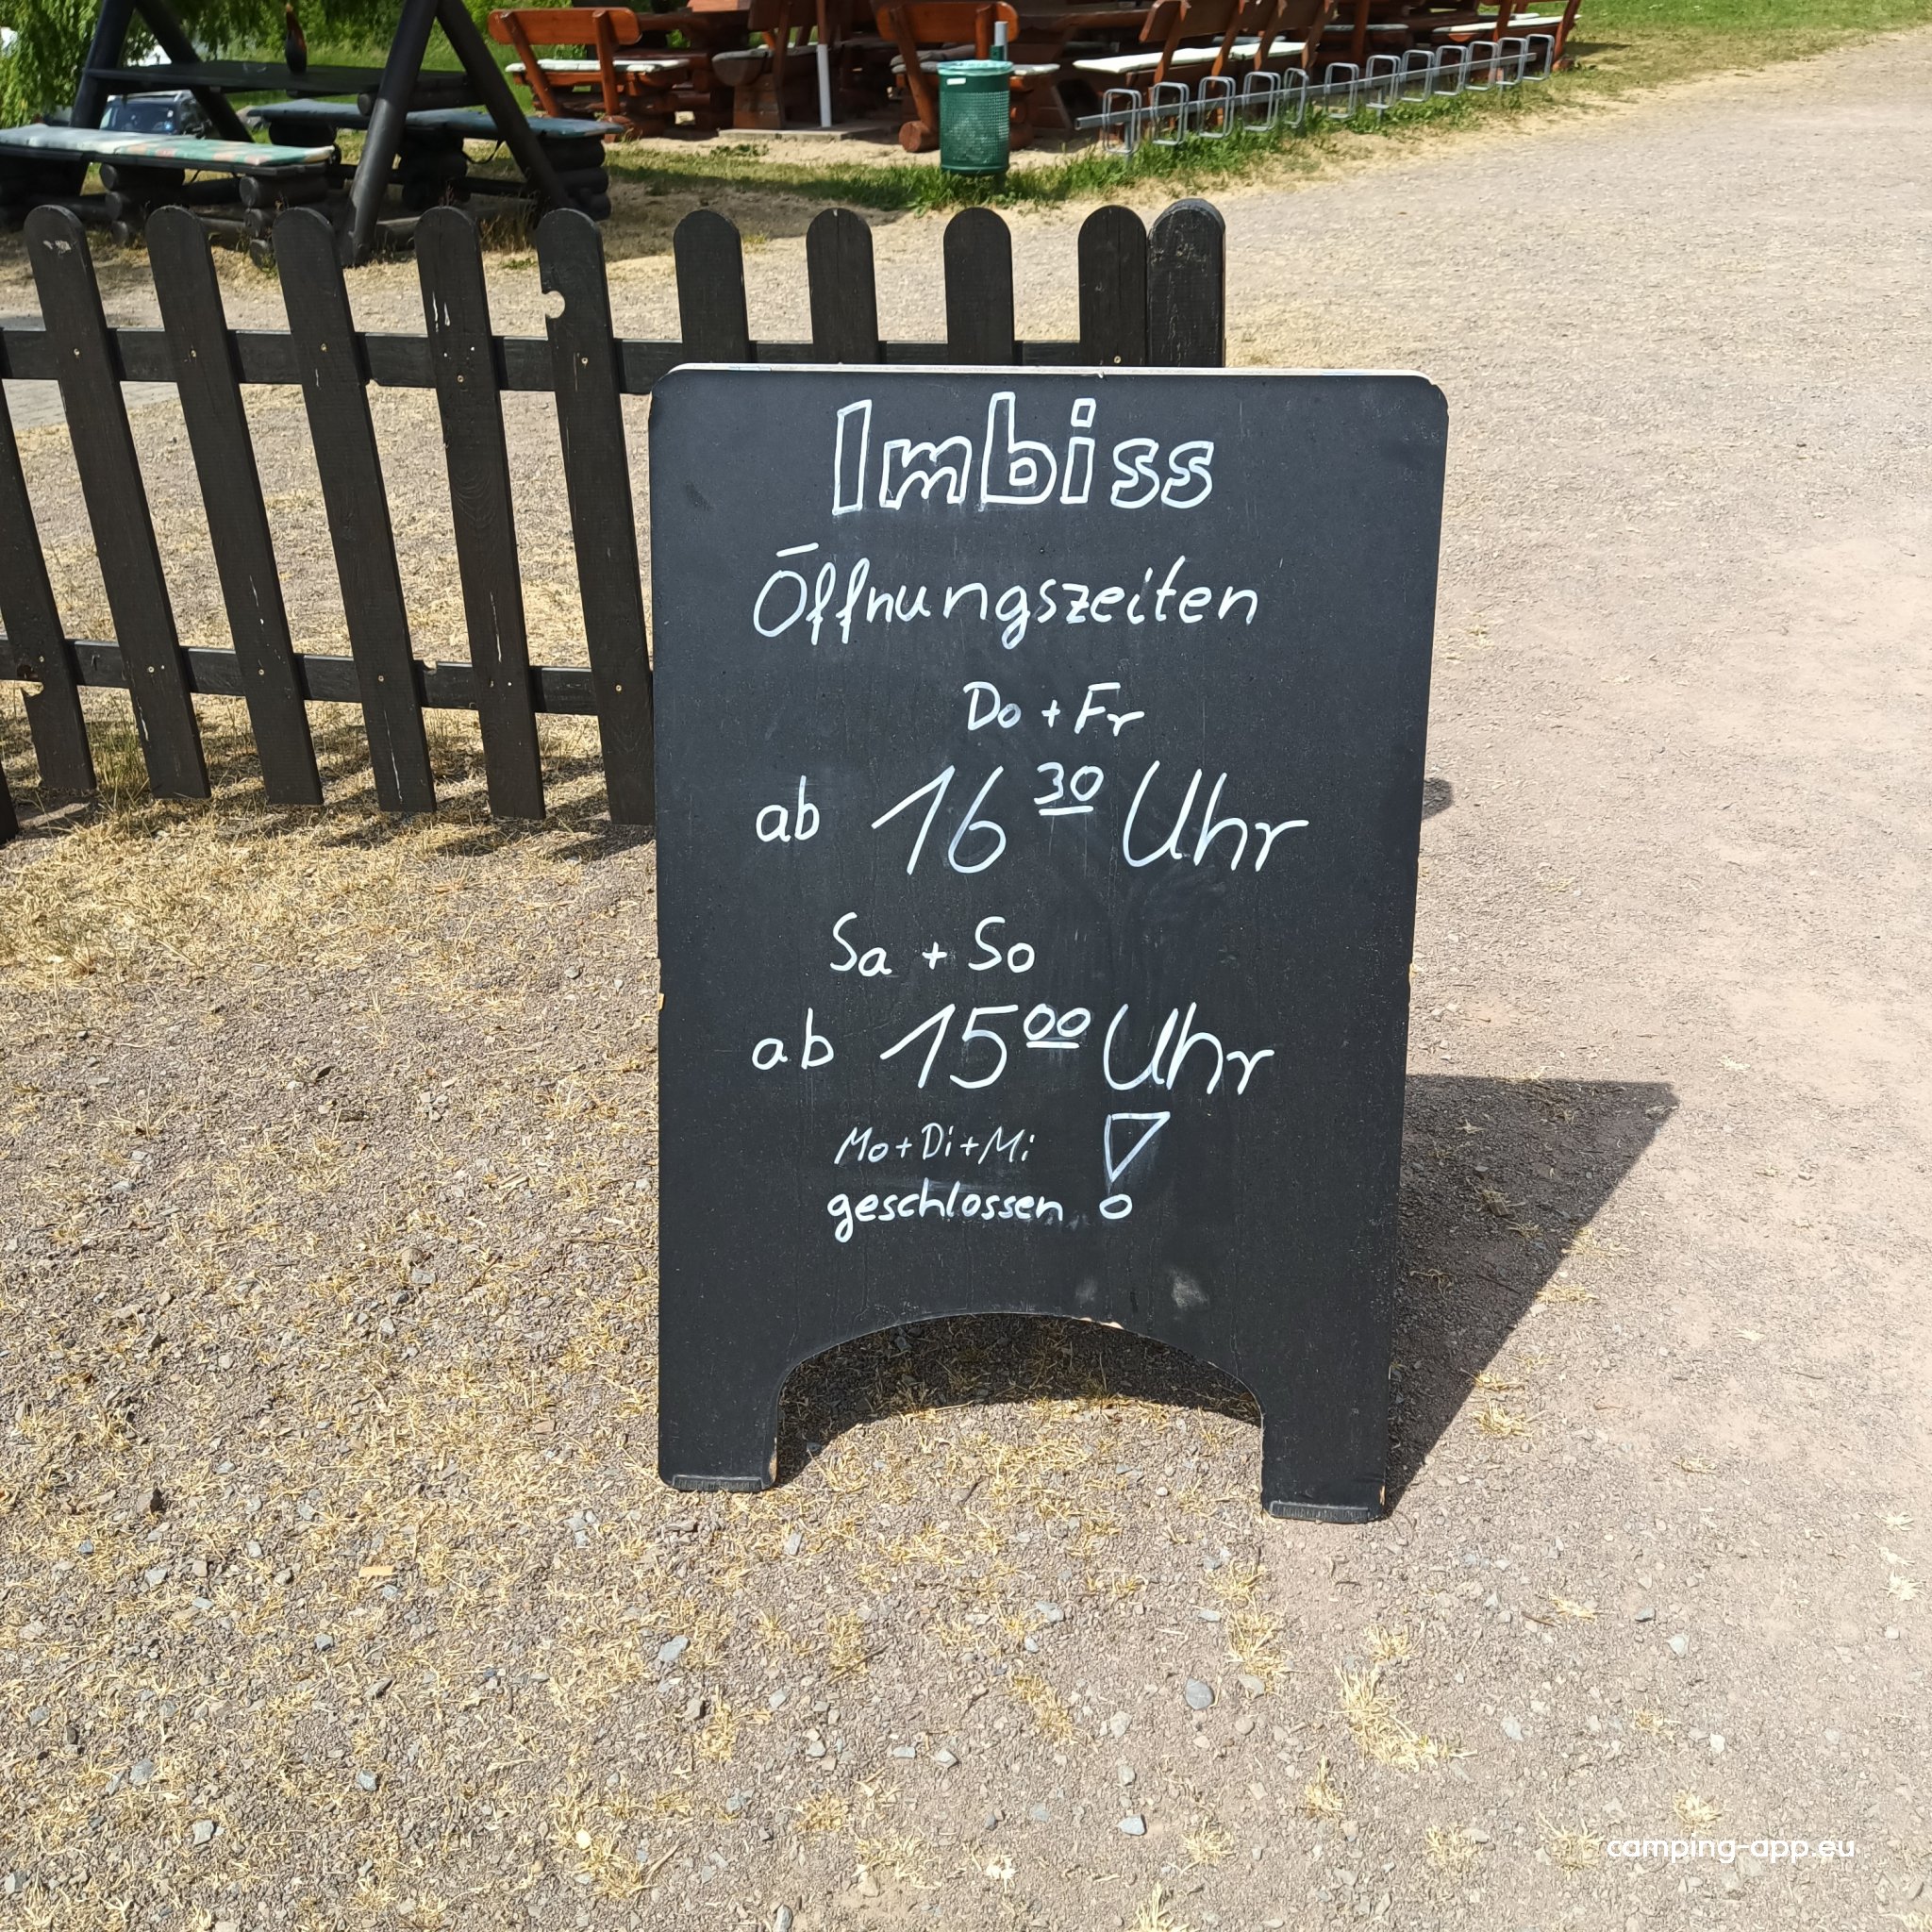 Imbiss
Öffnungszeiten
Do + Fr
ab 16 30 Uhr
Sa + So
ab 15 00 Uhr
Mo + Di + Mi
geschlossen !
camping-app.eu